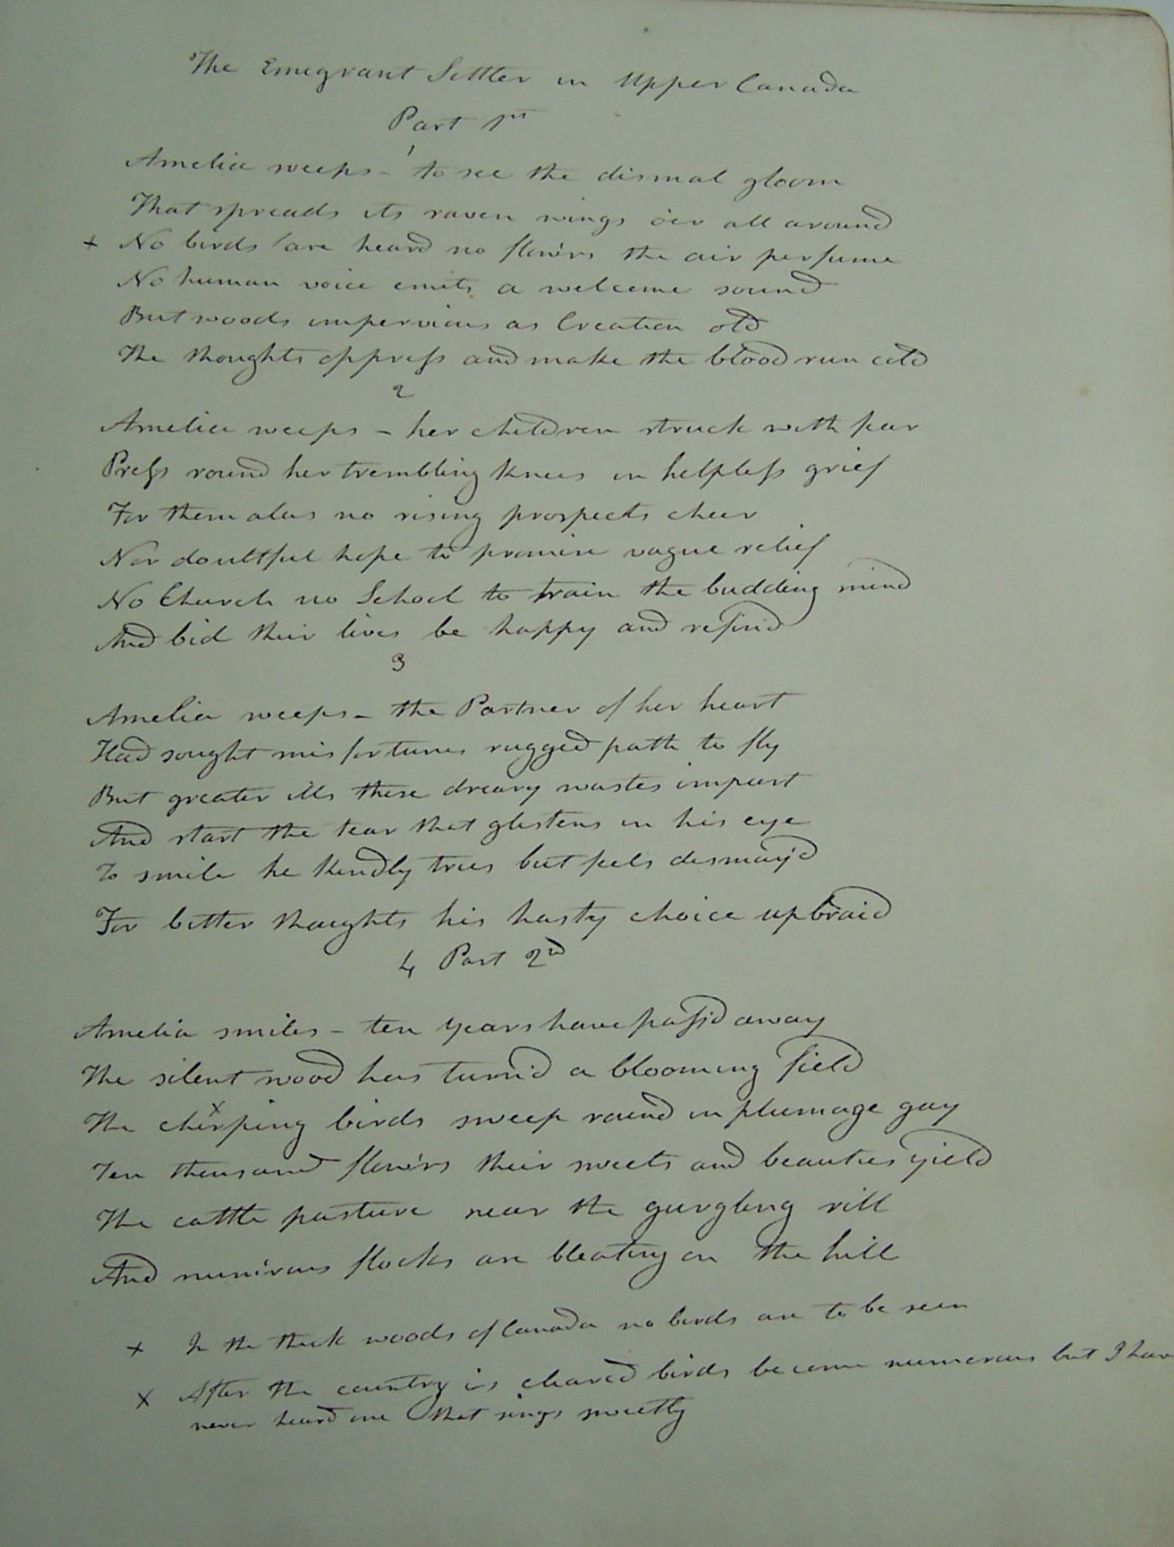 The Emegrant Settler in Upper Canada
Part 1st
1
Amelia weeps - to see the dismal gloom
That spreads its raven wings o'er all around
+ No birds are heard no flow'rs the air perfume
No human voice emits a welcome sound
But woods impervious as Creation old
The thoughts oppress and make the blood run cold
2
Amelia weeps - her children struck with fear
Press round her trembling knees in helpless grief
For them alas no rising prospects cheer
Nor doubtful hope to promise vague relief
No Church no School to train the budding mind
And bid their lives be happy and refin'd
3
Amelia weeps - the Partner of her heart
Had sought misfortunes rugged path to fly
But greater ills these dreary wastes impart
And start the tear that glistens in his eye
To smile he kindly tries but feels dismay'd
For bitter thoughts his hasty choice upbraid
4 Part 2nd
Amelia smiles - ten years have pass'd away
The silent wood has turn'd a blooming field
The chirping x birds sweep round in plumage gay
Ten thousand flow'rs their sweets and beauties yield
The cattle pasture near the gurgling rill
And num'rous flocks are bleating on the hill
+ In the thick woods of Canada no birds are to be seen
x After the country is cleared birds become numerous but I have
never heard one that sings sweetly